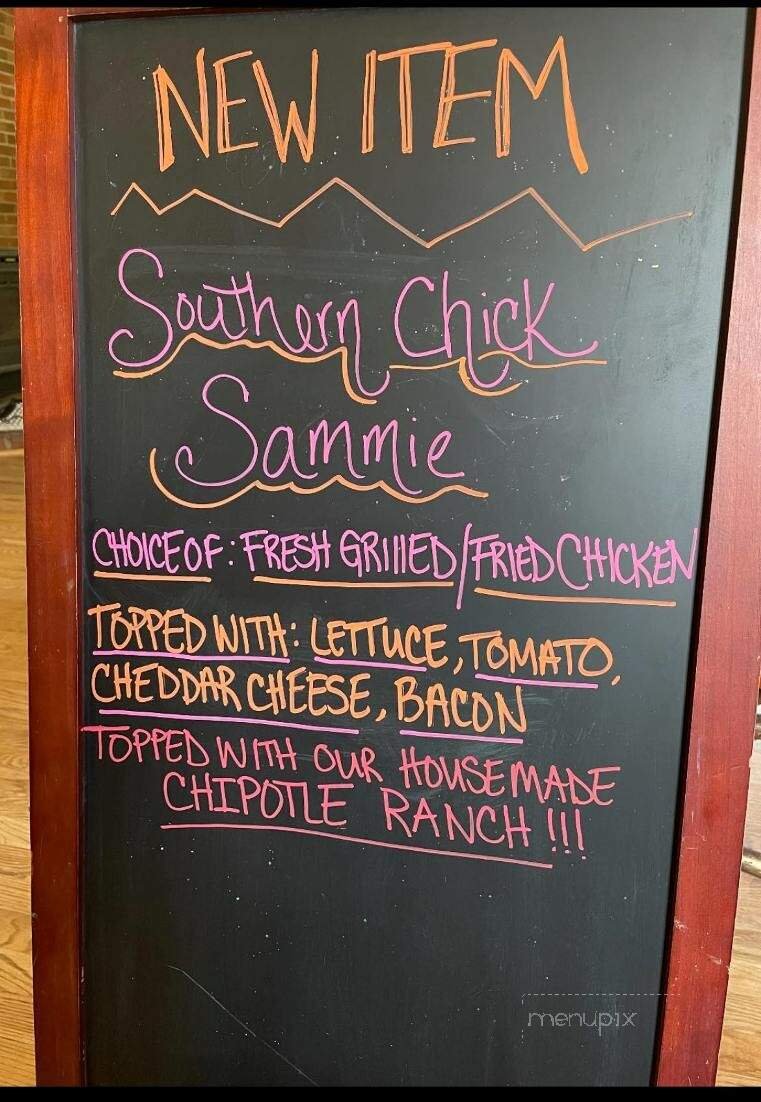 NEW ITEM
Southern Chick
Sammie
CHOICE OF: FRESH GRILLED/FRIED CHICKEN
TOPPED WITH: LETTUCE, TOMATO,
CHEDDAR CHEESE, BACON
TOPPED WITH OUR HOUSEMADE
CHIPOTLE RANCH!!!
menupix